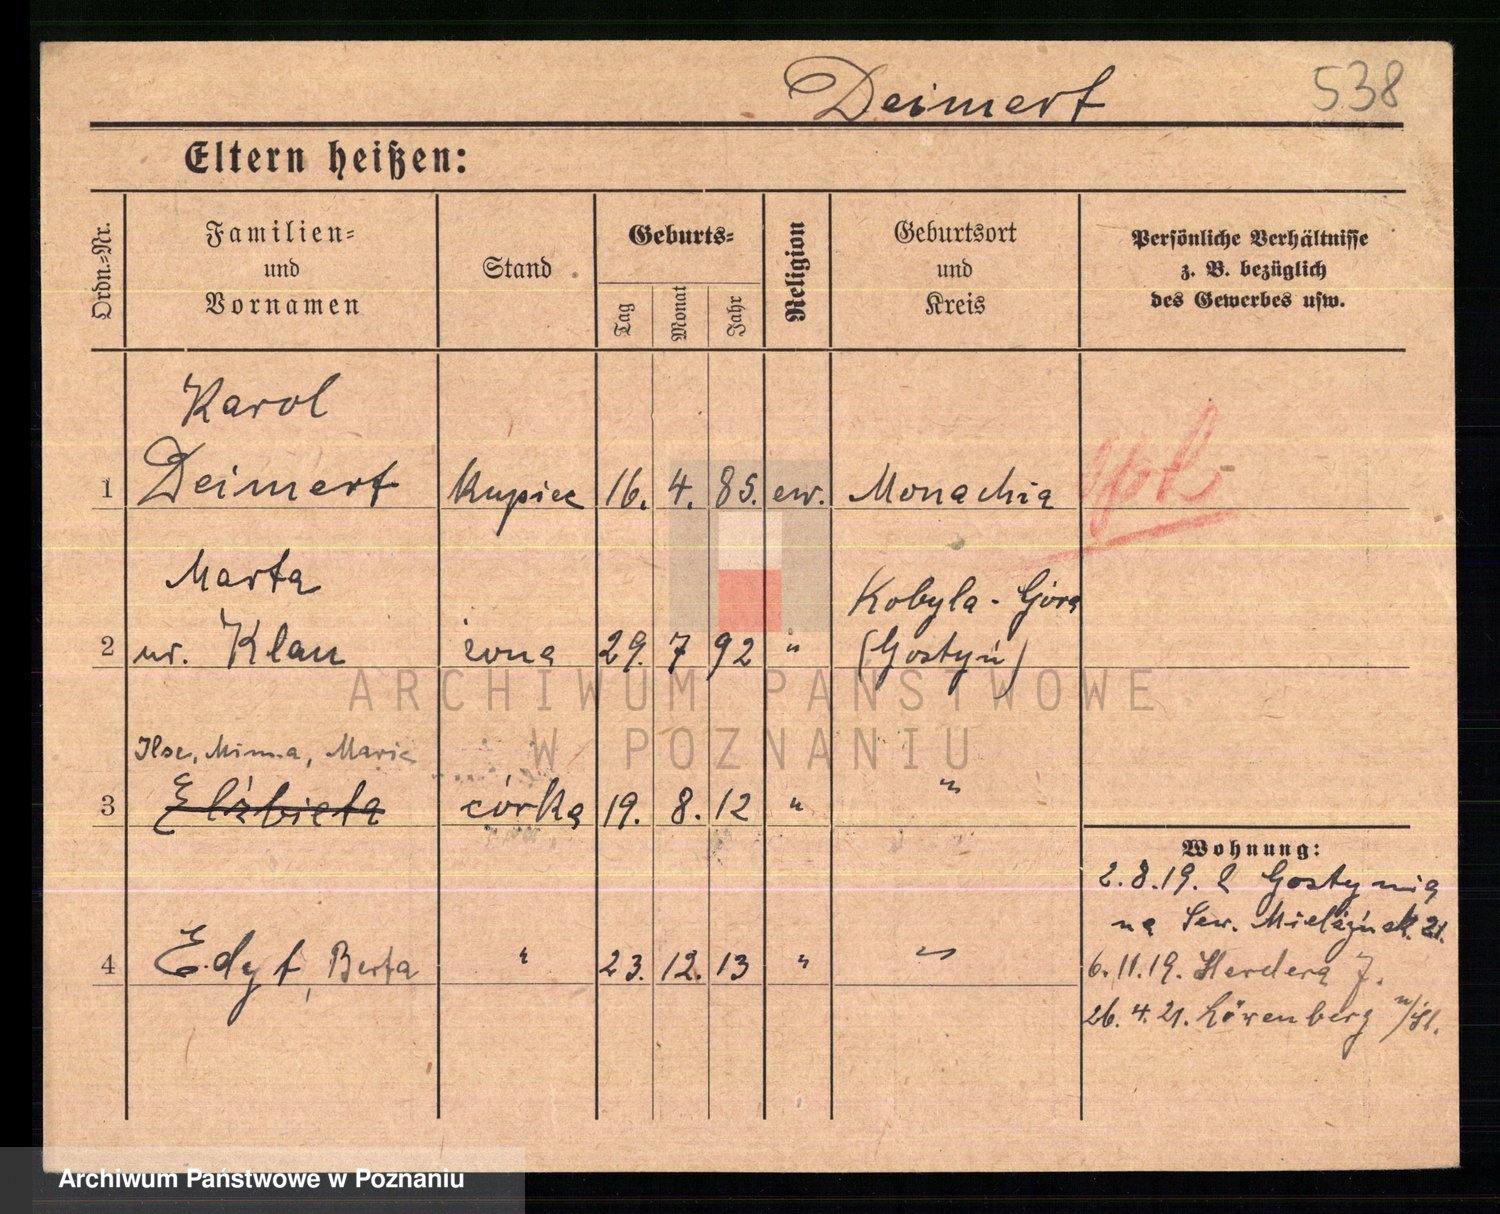 Deimert 538
Eltern heißen:
Ordn.-Nr.
Familien-
und
Vornamen
Stand
Geburts-
Tag
Monat
Jahr
Religion
Geburtsort
und
Kreis
Persönliche Verhältnisse
z. B. bezüglich
des Gewerbes usw.
Karol
1 Deimert kupiec 16. 4. 85. ew. Monachia
Marta Kobyla - Góra
2 ur. Klau żona 29. 7 92 " (Gostyń)
Ilse, Minna, Marie
3 Elżbieta córka 19. 8. 12 " "
Wohnung:
2.8.19. z Gostynia
na Sew. Mielżyńsk. 21.
4 Edyt, Berta " 23. 12. 13 " "
6.11.19. Herdera 7.
26.4.21. Löwenberg n/Sl.
ARCHIWUM PAŃSTWOWE
W POZNANIU
Archiwum Państwowe w Poznaniu